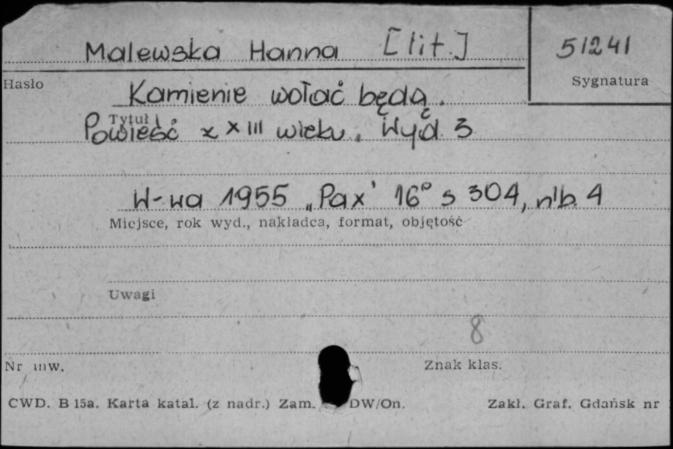 Malewska Hanna [lit.]
51241
Hasło
Sygnatura
Kamienie wołać będą.
Tytuł
Powieść z XIII wieku. Wyd 3
W-wa 1955 „Pax" 16° s 304, nlb. 4
Miejsce, rok wyd., nakładca, format, objętość
Uwagi
8
Nr inw.
Znak klas.
CWD. B 15a. Karta katal. (z nadr.) Zam. DW/On.
Zakł. Graf. Gdańsk nr